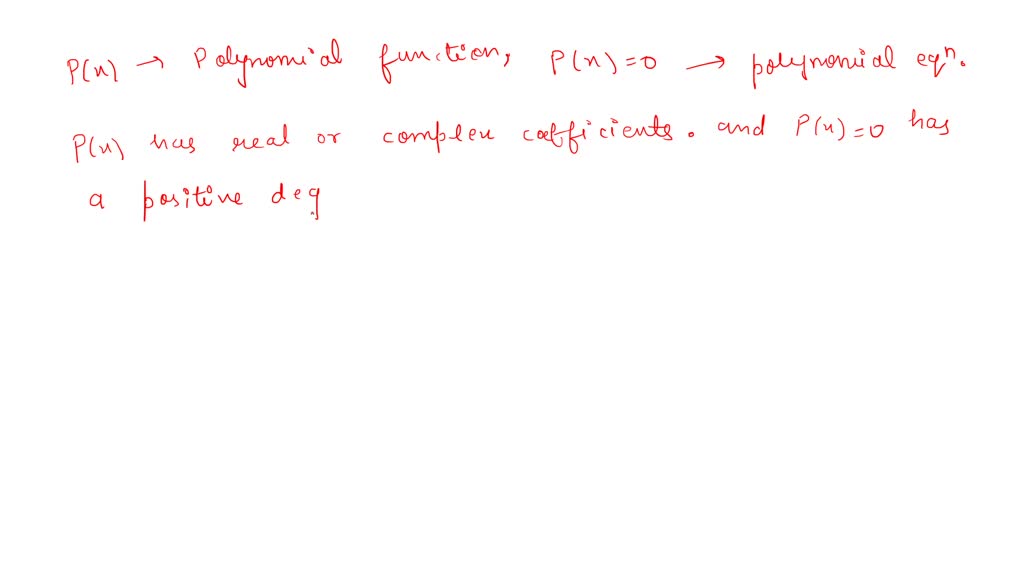 P(x) → Polynomial function, P(x)=0 → polynomial eqⁿ.
P(x) has real or complex coefficients. and P(x)=0 has
a positive deg